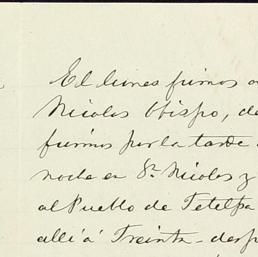 El lunes fuimos a
Nicolas Obispo, de
fuimos por la tarde
noche en Sn. Nicolas y
al Pueblo de Tetelpa
alli á Treinta - desp